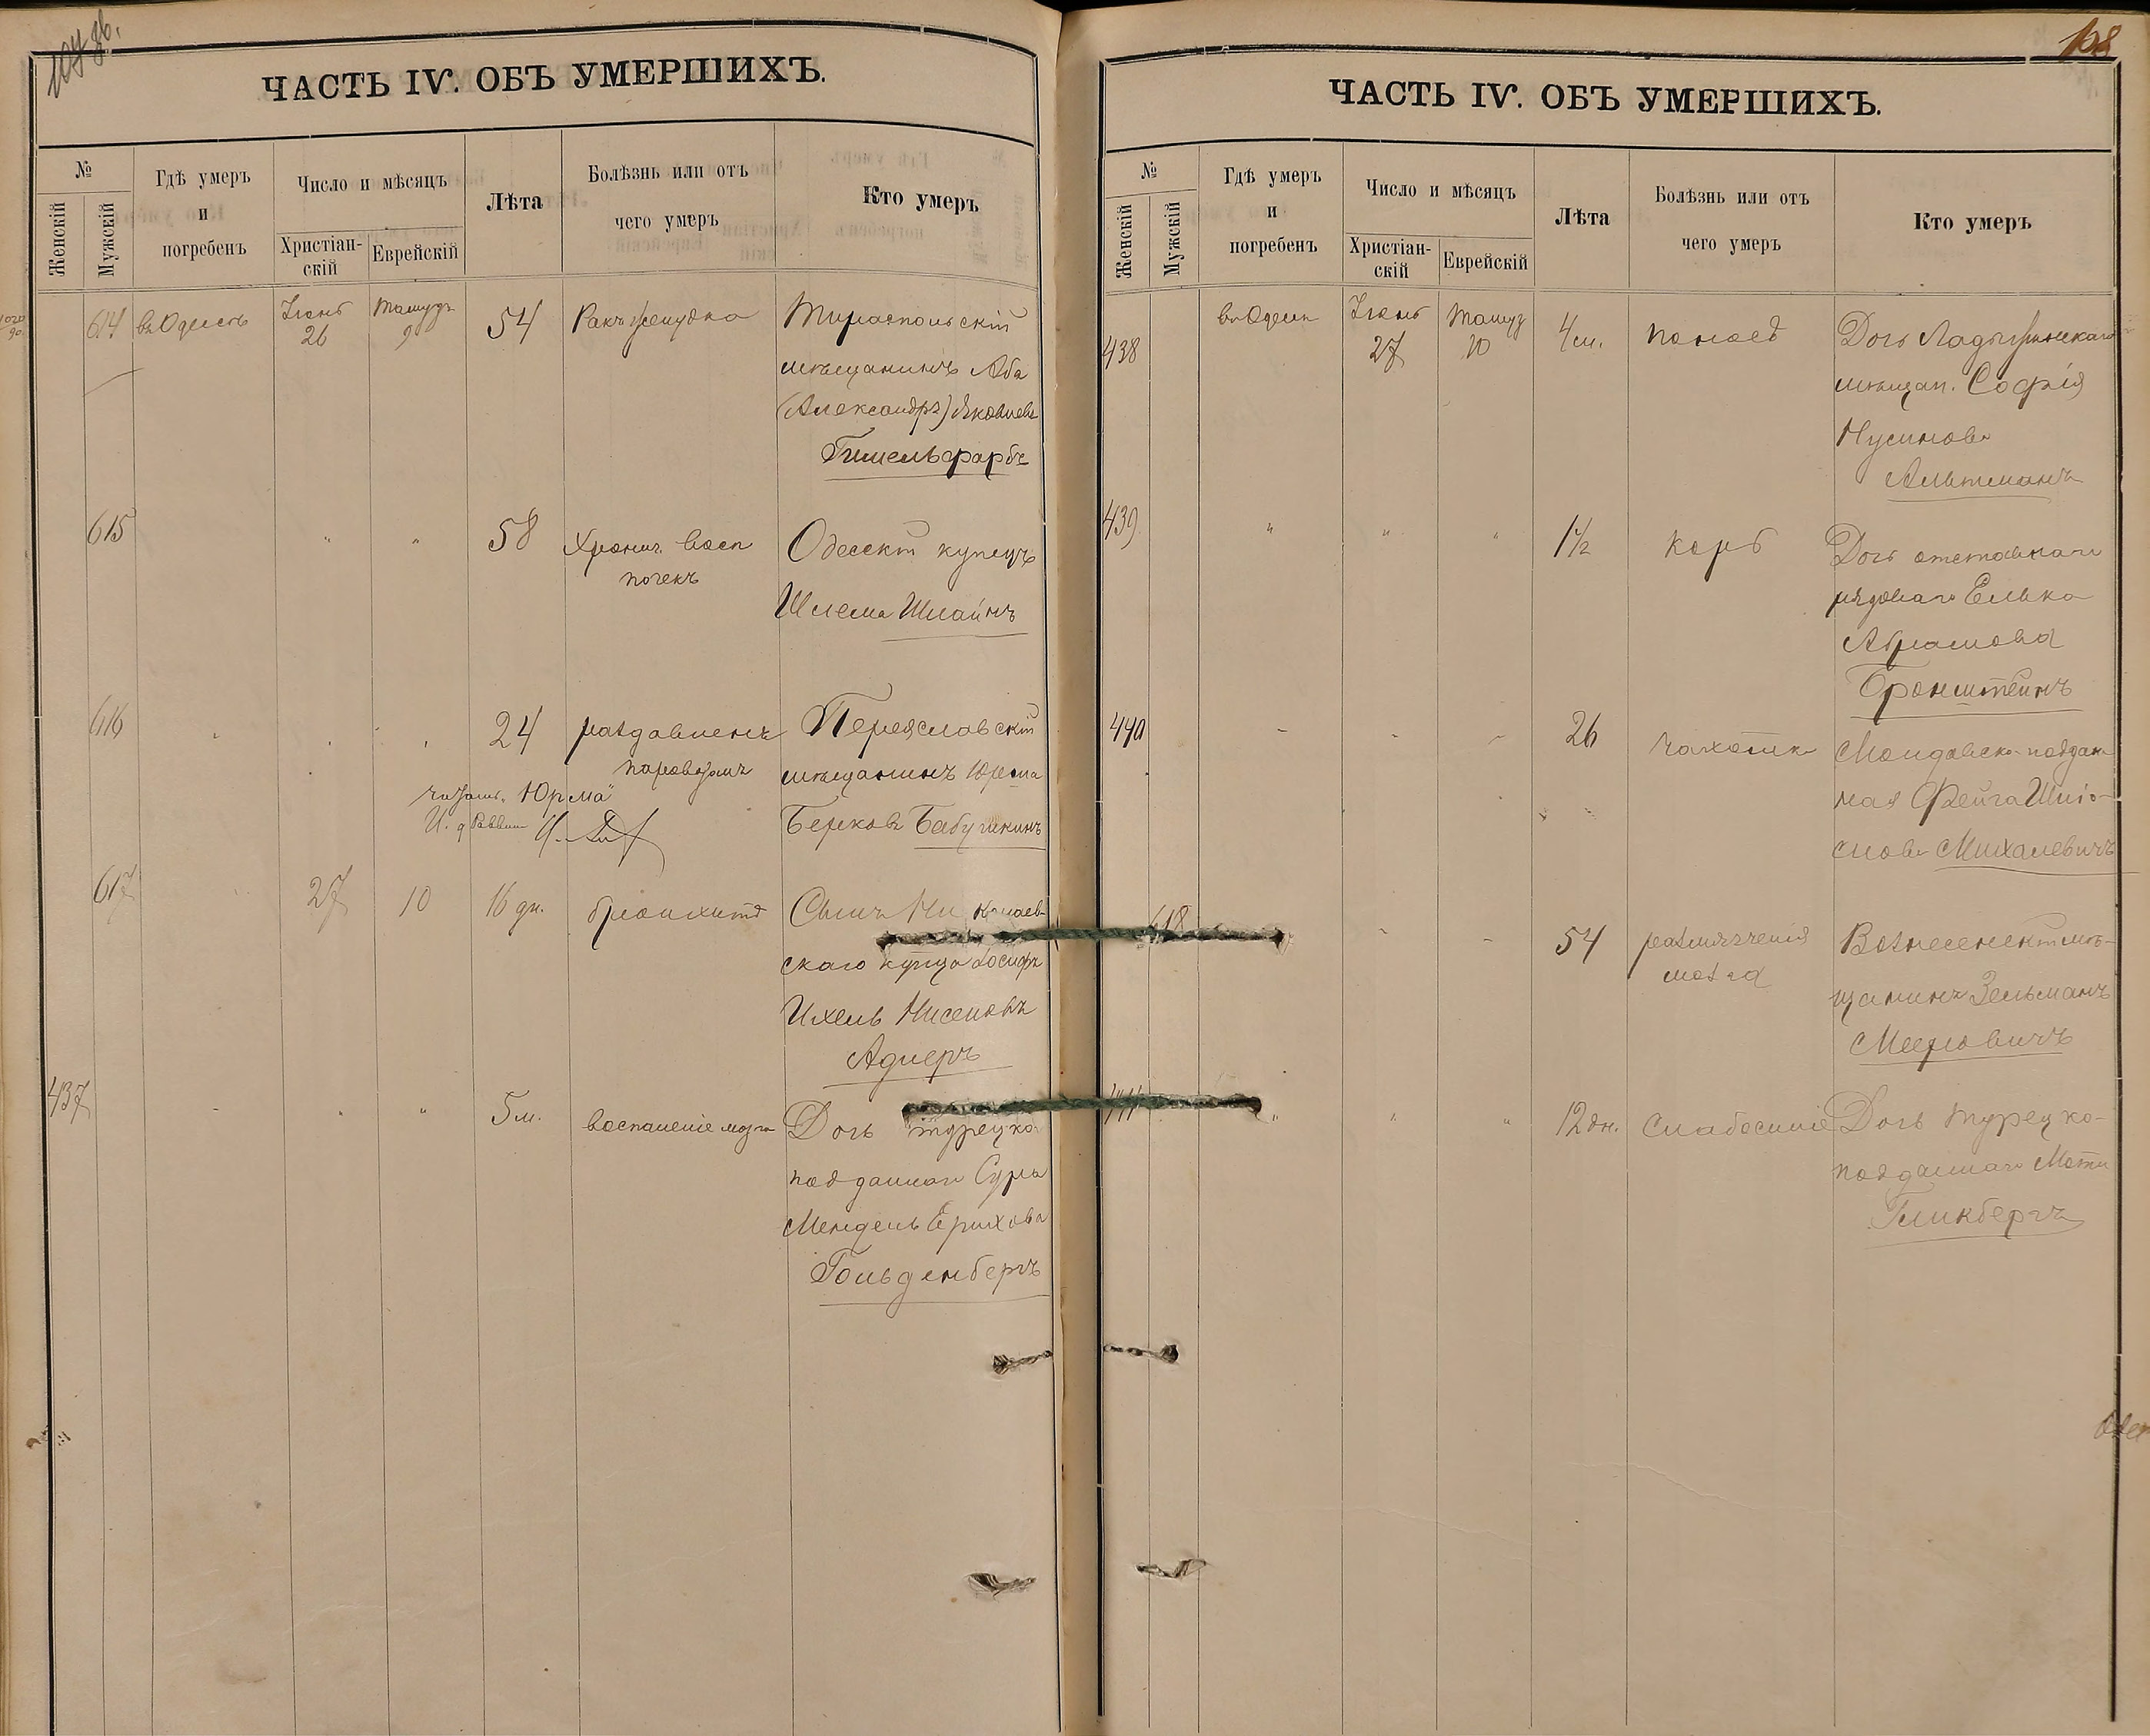 107 об.
ЧАСТЬ IV. ОБЪ УМЕРШИХЪ.
№
Женскій
Мужскій
Гдѣ умеръ
и
погребенъ
Число и мѣсяцъ
Христіан-
скій
Еврейскій
Лѣта
Болѣзнь или отъ
чего умеръ
Кто умеръ
614 въ Одессѣ Іюнь 26 Тамузъ 9 54 Ракъ желудка Тираспольскій
мѣщанинъ Аба
(Александръ) Яковлевъ
Гимельфарбъ
615 " " 58 Хронич. восп
почекъ
Одесскій купецъ
Шлема Шпайнъ
616 24 раздавленъ
паровозомъ
Переяславскій
мѣщанинъ Юрма
Берковъ Бабушкинъ
читать "Юрма"
И. д Раввин
617 27 10 16 дн. бронхитъ Сынъ Ни колаев-
скаго купца Іосифъ
Ихель Нисеновъ
Адлеръ
437 " " 5 м. воспаленіе мозга Дочь турецко
подданаго Сура
Мендель Ерихова
Гольденбергъ
108
ЧАСТЬ IV. ОБЪ УМЕРШИХЪ.
№
Женскій
Мужскій
Гдѣ умеръ
и
погребенъ
Число и мѣсяцъ
Христіан-
скій
Еврейскій
Лѣта
Болѣзнь или отъ
чего умеръ
Кто умеръ
438 въ Одесс Іюнь 27 Тамуз 10 4 м. поносъ Дочь Ладыжинскаго
мѣщан. Софія
Нусимова
Альтманъ
439 " " " 1 1/2 корь Дочь отставнаго
рядоваго Елька
Абрамова
Бронштейнъ
440 26 чахотка Молдавско-поддан
ная Фейга Шлiо-
мова Михалевичъ
618 54 размягченія
мозга
Вознесенскій мѣ-
щанинъ Зельманъ
Мееровичъ
441 " " " 12 дн. Слабосиліе Дочь турецко-
подданаго Моти
Гликбергъ